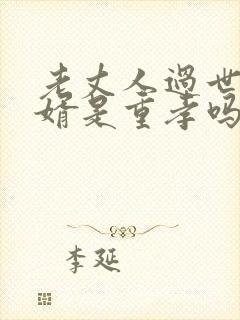 老丈人过世
婿是重孝吗
李延